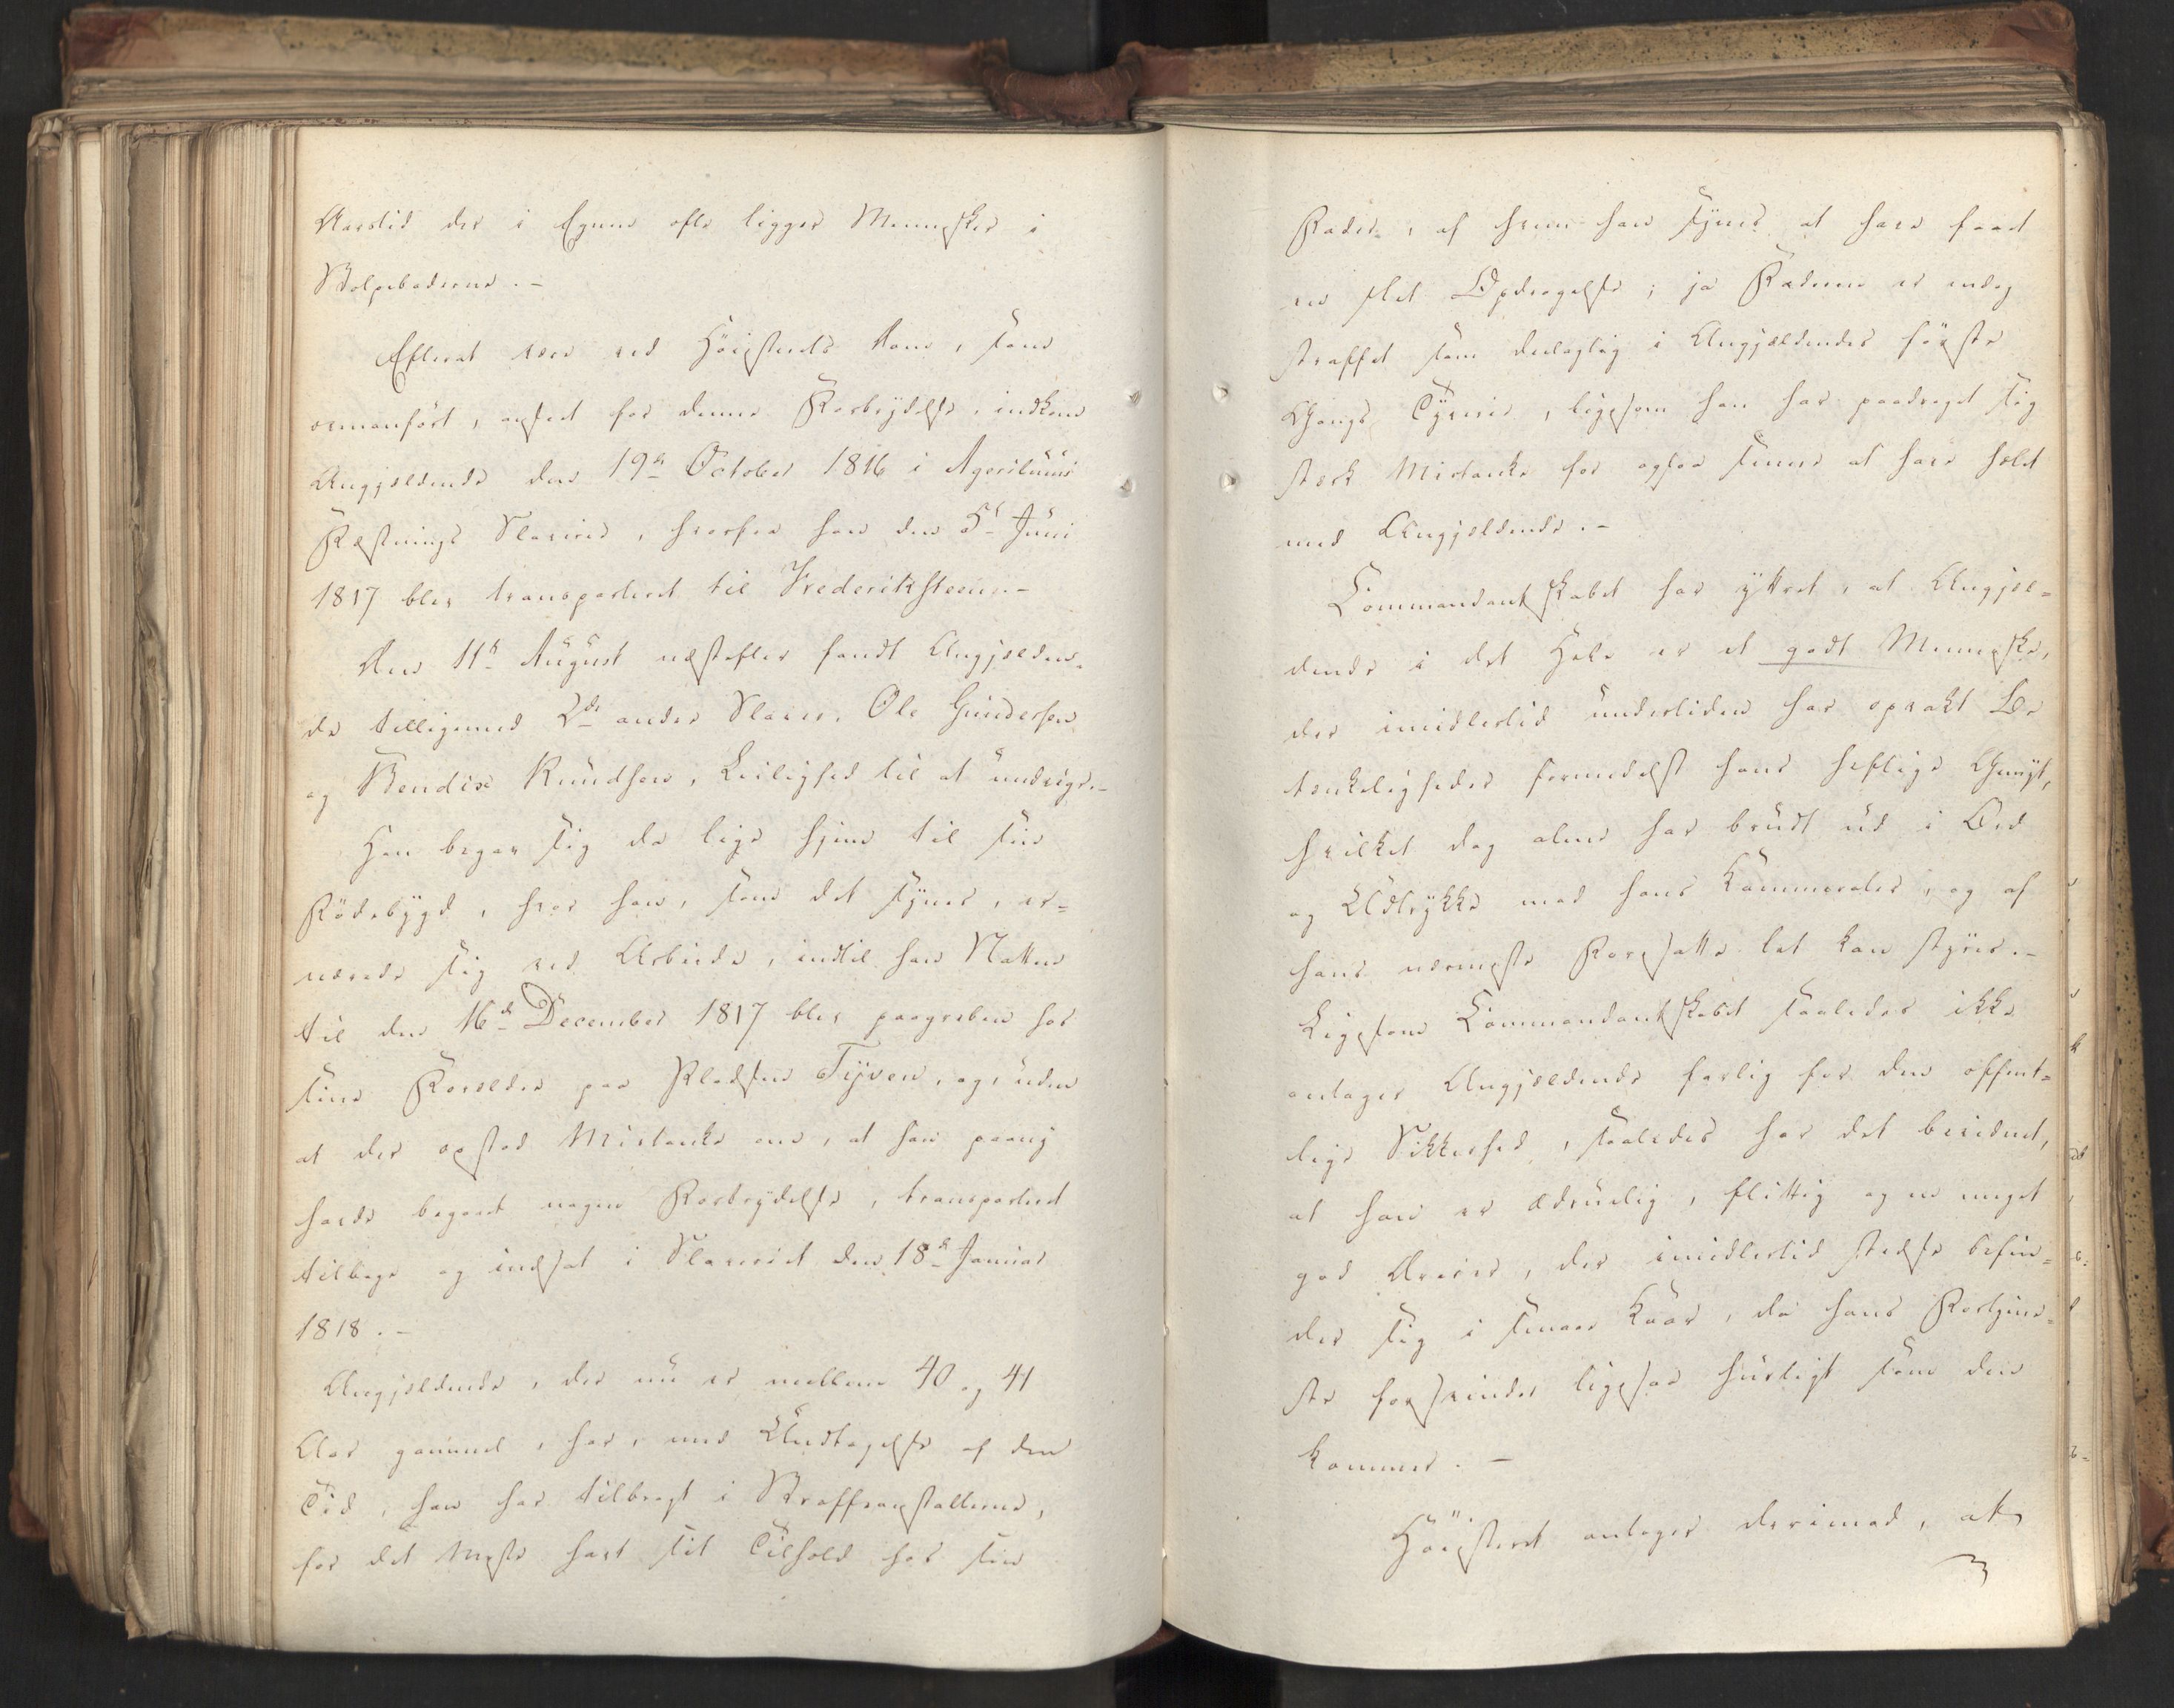 Aarstid der i Egnen ofte ligger Mennesker i
Stolpeboderne.-
Efterat være ved Höiesterets Dom, som
ovenanfört, anseet for denne Forbrydelse, indkom
Angjældende den 19de October 1816 i Agershuus
Fæstnings Slaverie, hvorfra han den 5te Juni
1817 blev transporteret til Frederiksteen.-
Den 11te August næstefter fandt Angjælden-
de tilligemed 2de andre Slaver, Ole Gundersen
og Bendix Knudsen, Leilighed til at undvige.-
Han begav sig da lige hjem til sin
Födebygd, hvor han, som det synes, er-
nærede sig ved Arbeide, indtil han Natten
til den 16de December 1817 blev paagreben hos
sine Forældre paa Pladsen Tyven, og, uden
at der opstod Mistanke om, at han paany
havde begaaet nogen Forbrydelse, transporteret
tilbage og indsat i Slaveriet den 18de Januar
1818.-
Angjældende, der nu er mellem 40 og 41
Aar gammel, har, med Undtagelse af den
Tid, han har tilbragt i Straffeanstalterne,
for det Meste havt sit Tilhold hos sin
Fader, af hvem han synes at have faaet
en slet Opdragelse; ja Faderen er endog
straffet som deelagtig i Angjældendes förste
Gangs Tyverie, ligesom han har paadraget sig
stærk Mistanke for ogsaa senere at have holdt
med Angjældende.-
Commandantskabet har yttret, at Angjæl-
dende i det Hele er et godt Menneske,
der imidlertid undertiden har opvakt Be
tænkeligheder formedelst hans heftige Gemyt,
hvilket dog alene har brudt ud i Ord
og Udtrykke mod hans Kammerater, og af
hans nærmeste Foresatte let kan styres.-
Ligesom Commandantskabet saaledes ikke
antager Angjældende farlig for den offent-
lige Sikkerhed, saaledes har det bevidnet,
at han er ædruelig, flittig og en meget
god Dreier, der imidlertid stedse befin-
der sig i smaae Kaar, da hans Fortjene-
ste forsvinder ligesaa hurtigt som den
kommer.-
Höiesteret antager derimod, at